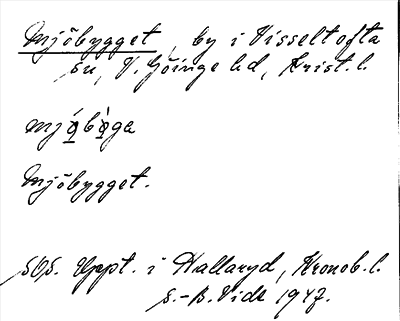 Mjöbygget, by i Visseltofta
sn, V. Göinge hd, Krist. l.
mjó̲bò̲ga
Mjöbygget.
SOS. Uppt. i Hallaryd, Kronob. l.
S.-B. Vide 1947.